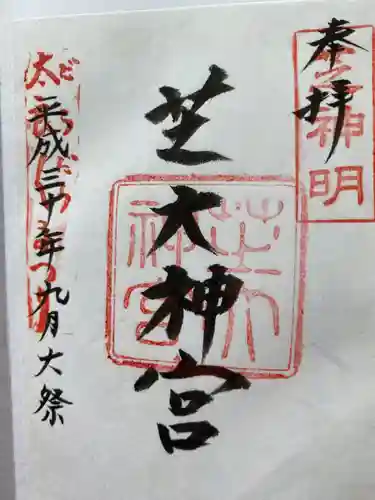 奉拝
芝神明
芝大神宮
芝大神宮
平成三十年九月大祭